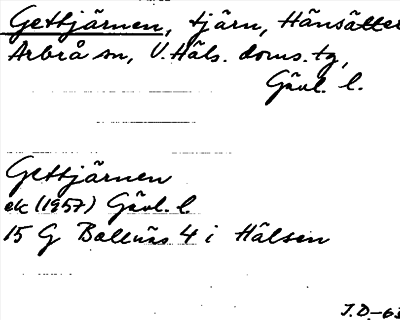 Gettjärnen, tjärn, Hänsätter
Arbrå sn, V. Häls. doms. tg,
Gävl. l.
Gettjärnen
ek (1957) Gävl. l.
15 G Bollnäs 4 i Hälsen
J.D.-63